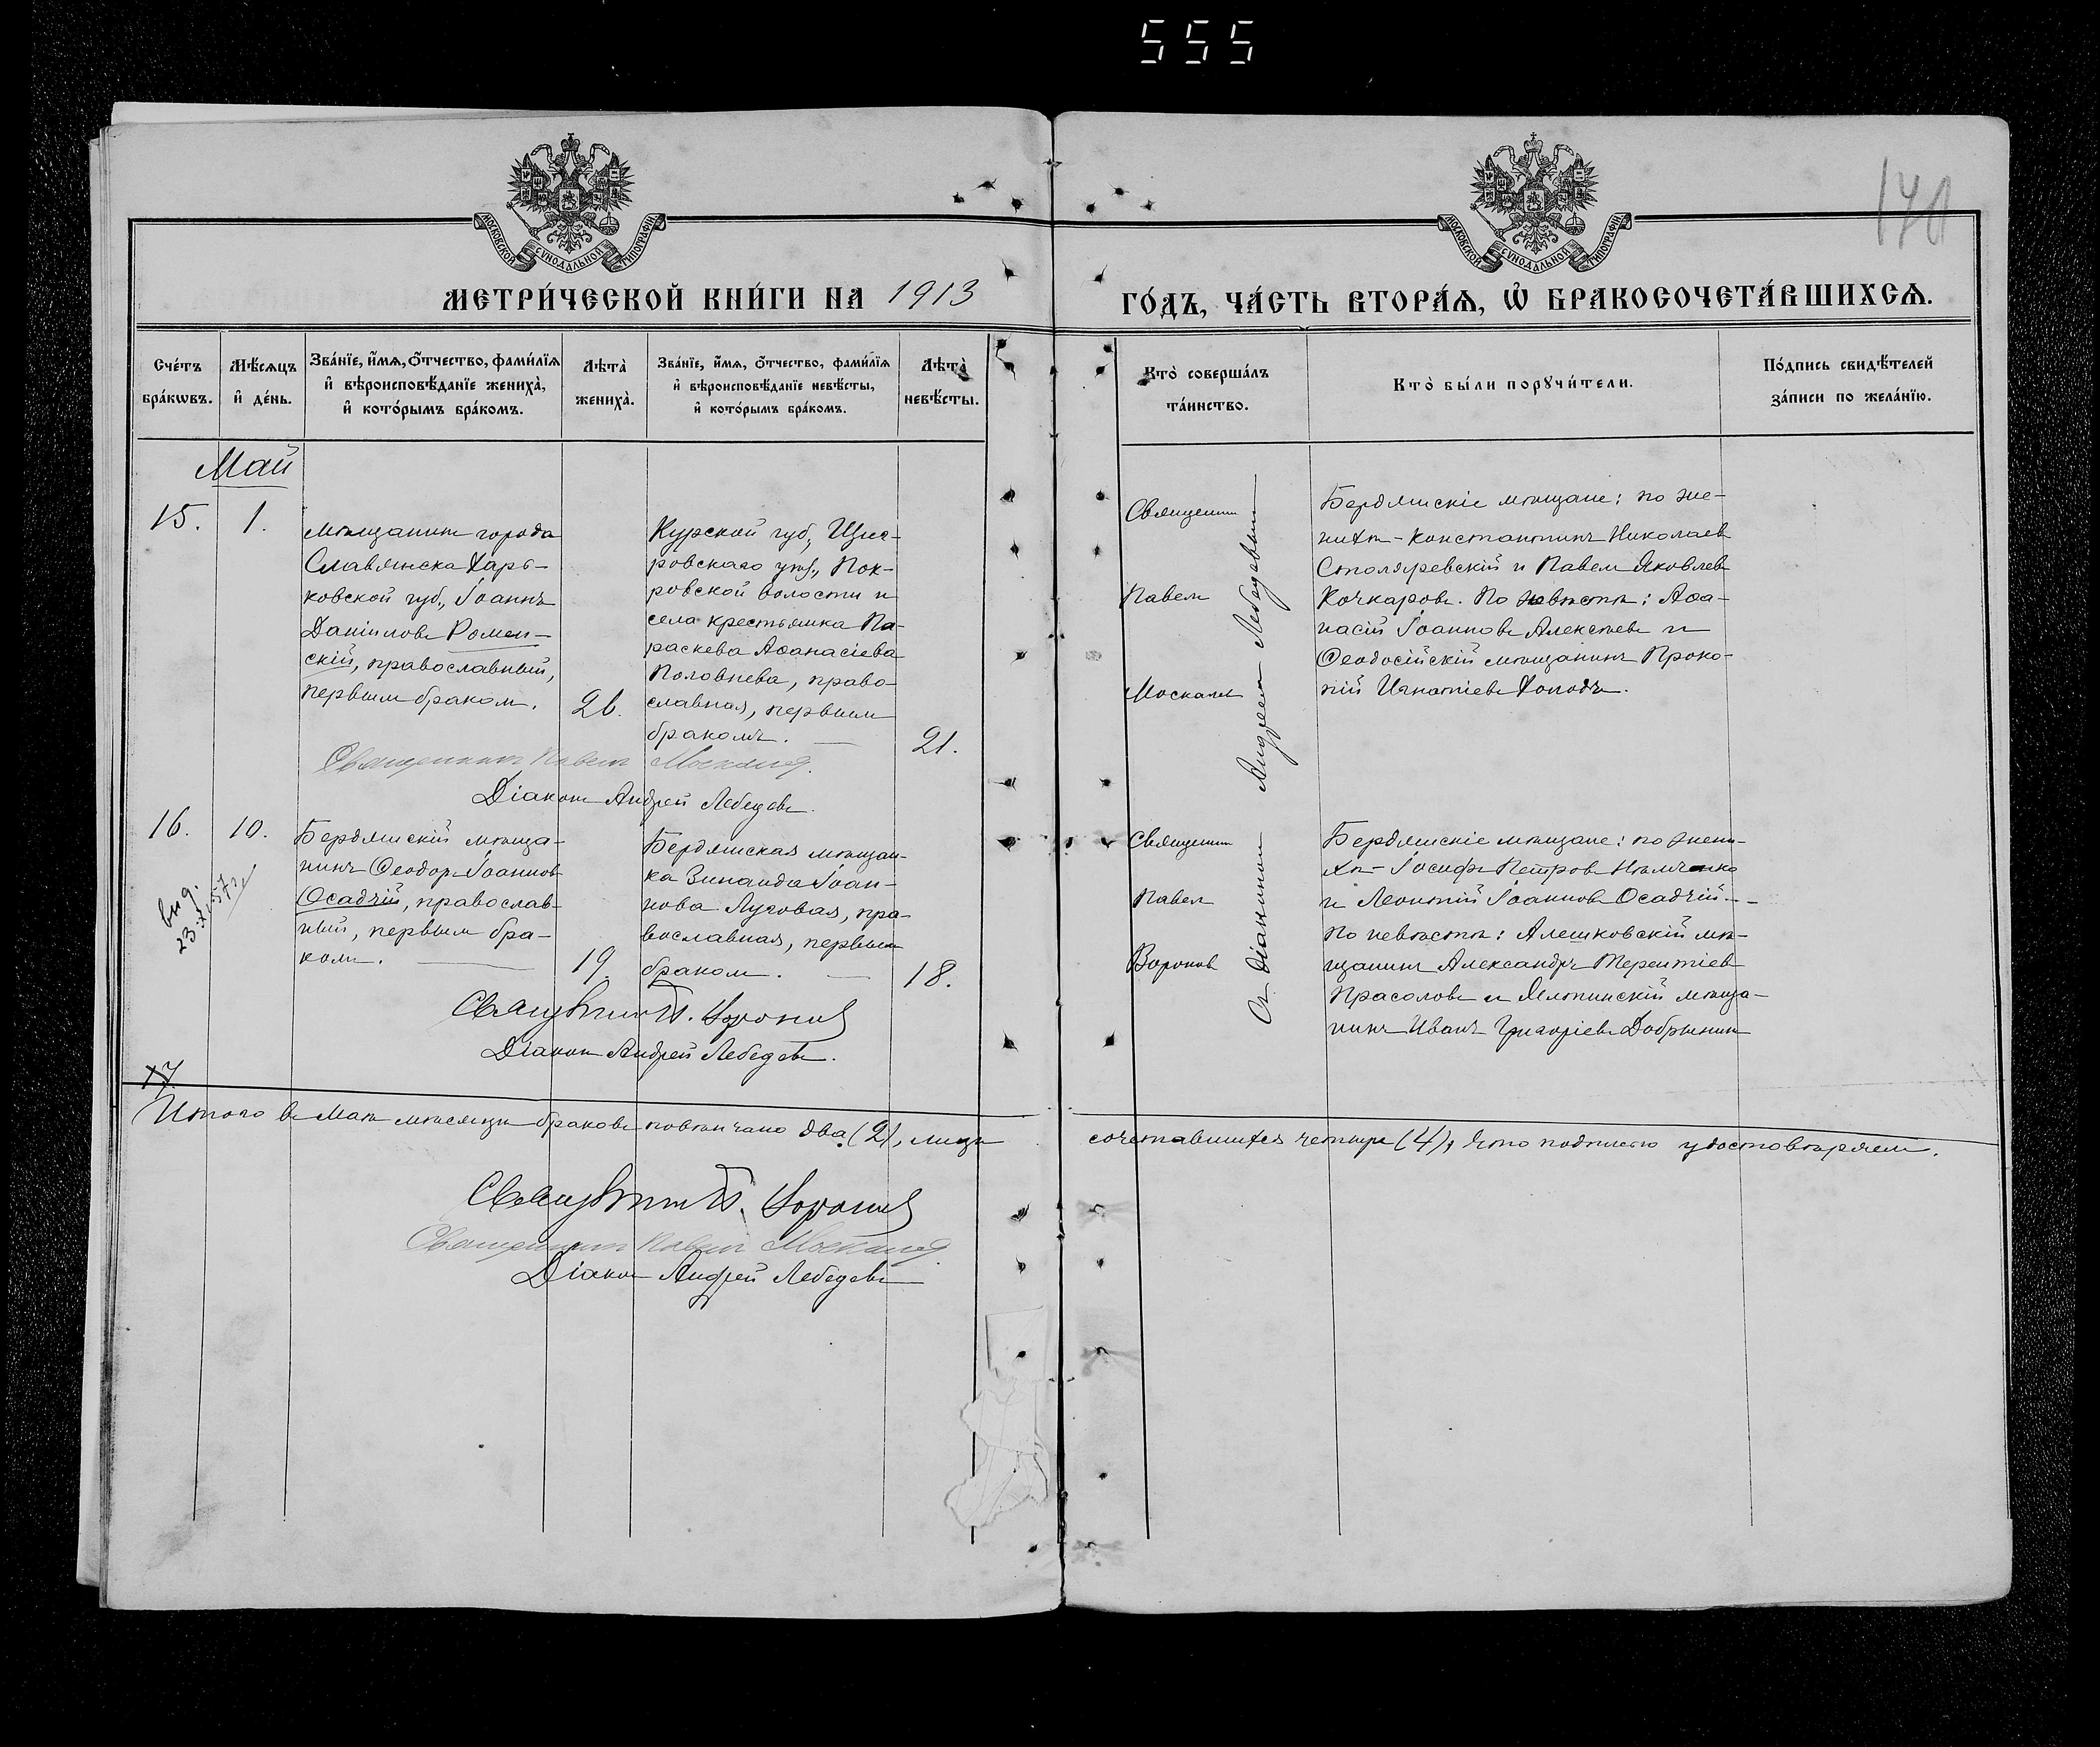 555
170
МОСКОВСКОЙ СѴНОДАЛЬНОЙ ТИПОГРАФІИ
МОСКОВСКОЙ СѴНОДАЛЬНОЙ ТИПОГРАФІИ
МЕТРИ́ЧЕСКОЙ КНИ́ГИ НА 1913
ГО́ДЪ, ЧА́СТЬ ВТОРА́Ѧ, Ѽ БРАКОСОЧЕТА́ВШИХСѦ.
Сче́тъ
бра́кѡвъ.
Мѣ́сяцъ
и҆ де́нь.
Зва́нїе, и҆́мѧ, ѻ҆́тчество, фами́лїѧ
и҆ вѣроисповѣ́данїе жениха̀,
и҆ кото́рымъ бра́комъ.
Лѣта̀
жениха̀.
Зва́нїе, и҆́мѧ, ѻ҆́тчество, фами́лїѧ
и҆ вѣроисповѣ́данїе невѣ́сты,
и҆ кото́рымъ бра́комъ.
Лѣта̀
невѣ́сты.
Кто̀ соверша́лъ
та́инство.
Кто̀ бы́ли порꙋчи́тели.
По́дпись свидѣ́телей
за́писи по жела́нїю.
Май
15.
1.
мѣщанинъ города
Славянска Харь-
ковской губ., Іоаннъ
Даніиловъ Ромен-
скій, православный,
первымъ бракомъ.
26.
Курской губ., Щиг-
ровскаго уѣз., Пок-
ровской волости и
села крестьянка Па-
раскева Аѳанасіева
Половнева, право-
славная, первымъ
бракомъ. —
21.
Священникъ
Павелъ
Москалев
Съ діакономъ Андреем Лебедевымъ
Бердянскіе мѣщане: по же-
нихѣ - Константинъ Николаевъ
Столяревскій и Павелъ Яковлевъ
Кочкаровъ. По невѣстѣ: Аѳа-
насій Іоанновъ Алексѣевъ и
Ѳеодосійскій мѣщанинъ Проко-
пій Игнатіевъ Хоподъ.
Священникъ Павелъ
Діаконъ Андрей Лебедевъ.
16.
10.
выд.
23.
Бердянскій мѣща-
нинъ Ѳеодоръ Іоанновъ
Осадчій, православ-
ный, первымъ бра-
комъ. —
19.
Бердянская мѣщан-
ка Зинаида Іоан-
нова Луговая, пра-
вославная, первымъ
бракомъ. —
18.
Священникъ
Павелъ
Вороновъ
Бердянскіе мѣщане: по жени-
хѣ - Іосифъ Петровъ Нѣмченко
и Леонтій Іоанновъ Осадчій. -
По невѣстѣ: Алешковскій мѣ-
щанинъ Александръ Терентіевъ
Прасоловъ и мѣща-
нинъ Иванъ Григоріевъ Добрынинъ
Священникъ П. Воронов
Діаконъ Андрей Лебедевъ.
17.
Итого въ Маѣ мѣсяцѣ браковъ повѣнчано два (2), лицъ
сочетавшихся четыре (4), что подписью удостовѣряемъ.
Священникъ П. Воронов
Священникъ Павелъ
Діаконъ Андрей Лебедевъ